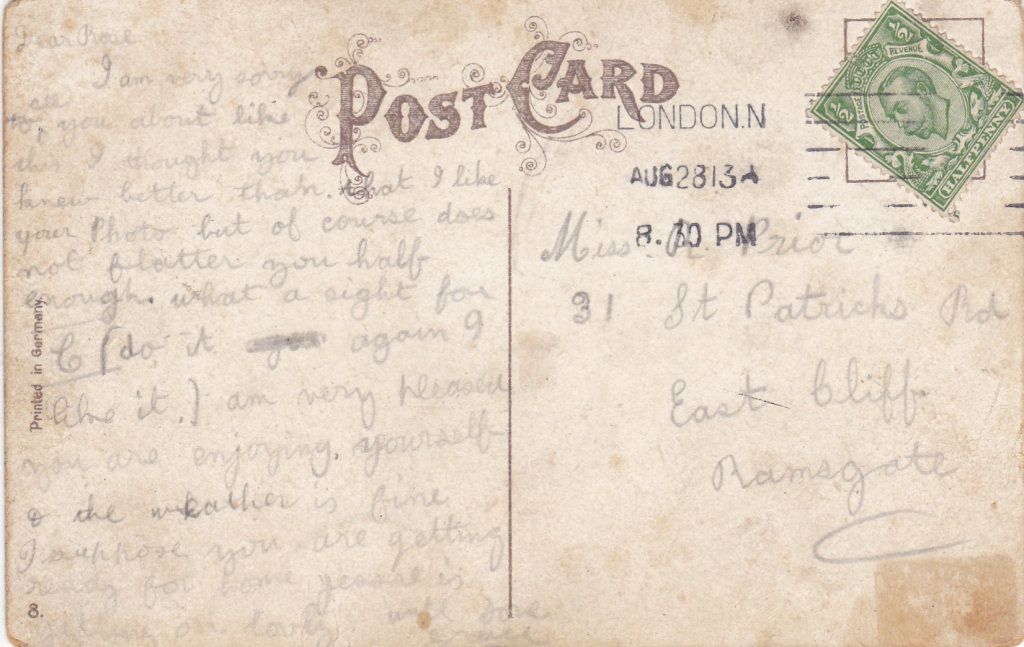 Dear Rose
I am very sorry
to, you about like
this I thought you
knew better than. that I like
your Photo but of course does
not flatter you half
enough. what a sight for
(do it again?
like it.) am very pleased
you are enjoying. yourself
& the weather is fine
I suppose you are getting
ready for home Jessie is
getting on lovely with
Printed in Germany.
8.
POST CARD
LONDON.N
AUG 28 13
8.30 PM
POSTAGE REVENUE
1/2 1/2
HALFPENNY
Miss. R. Prior
31 St Patricks Rd
East Cliff.
Ramsgate